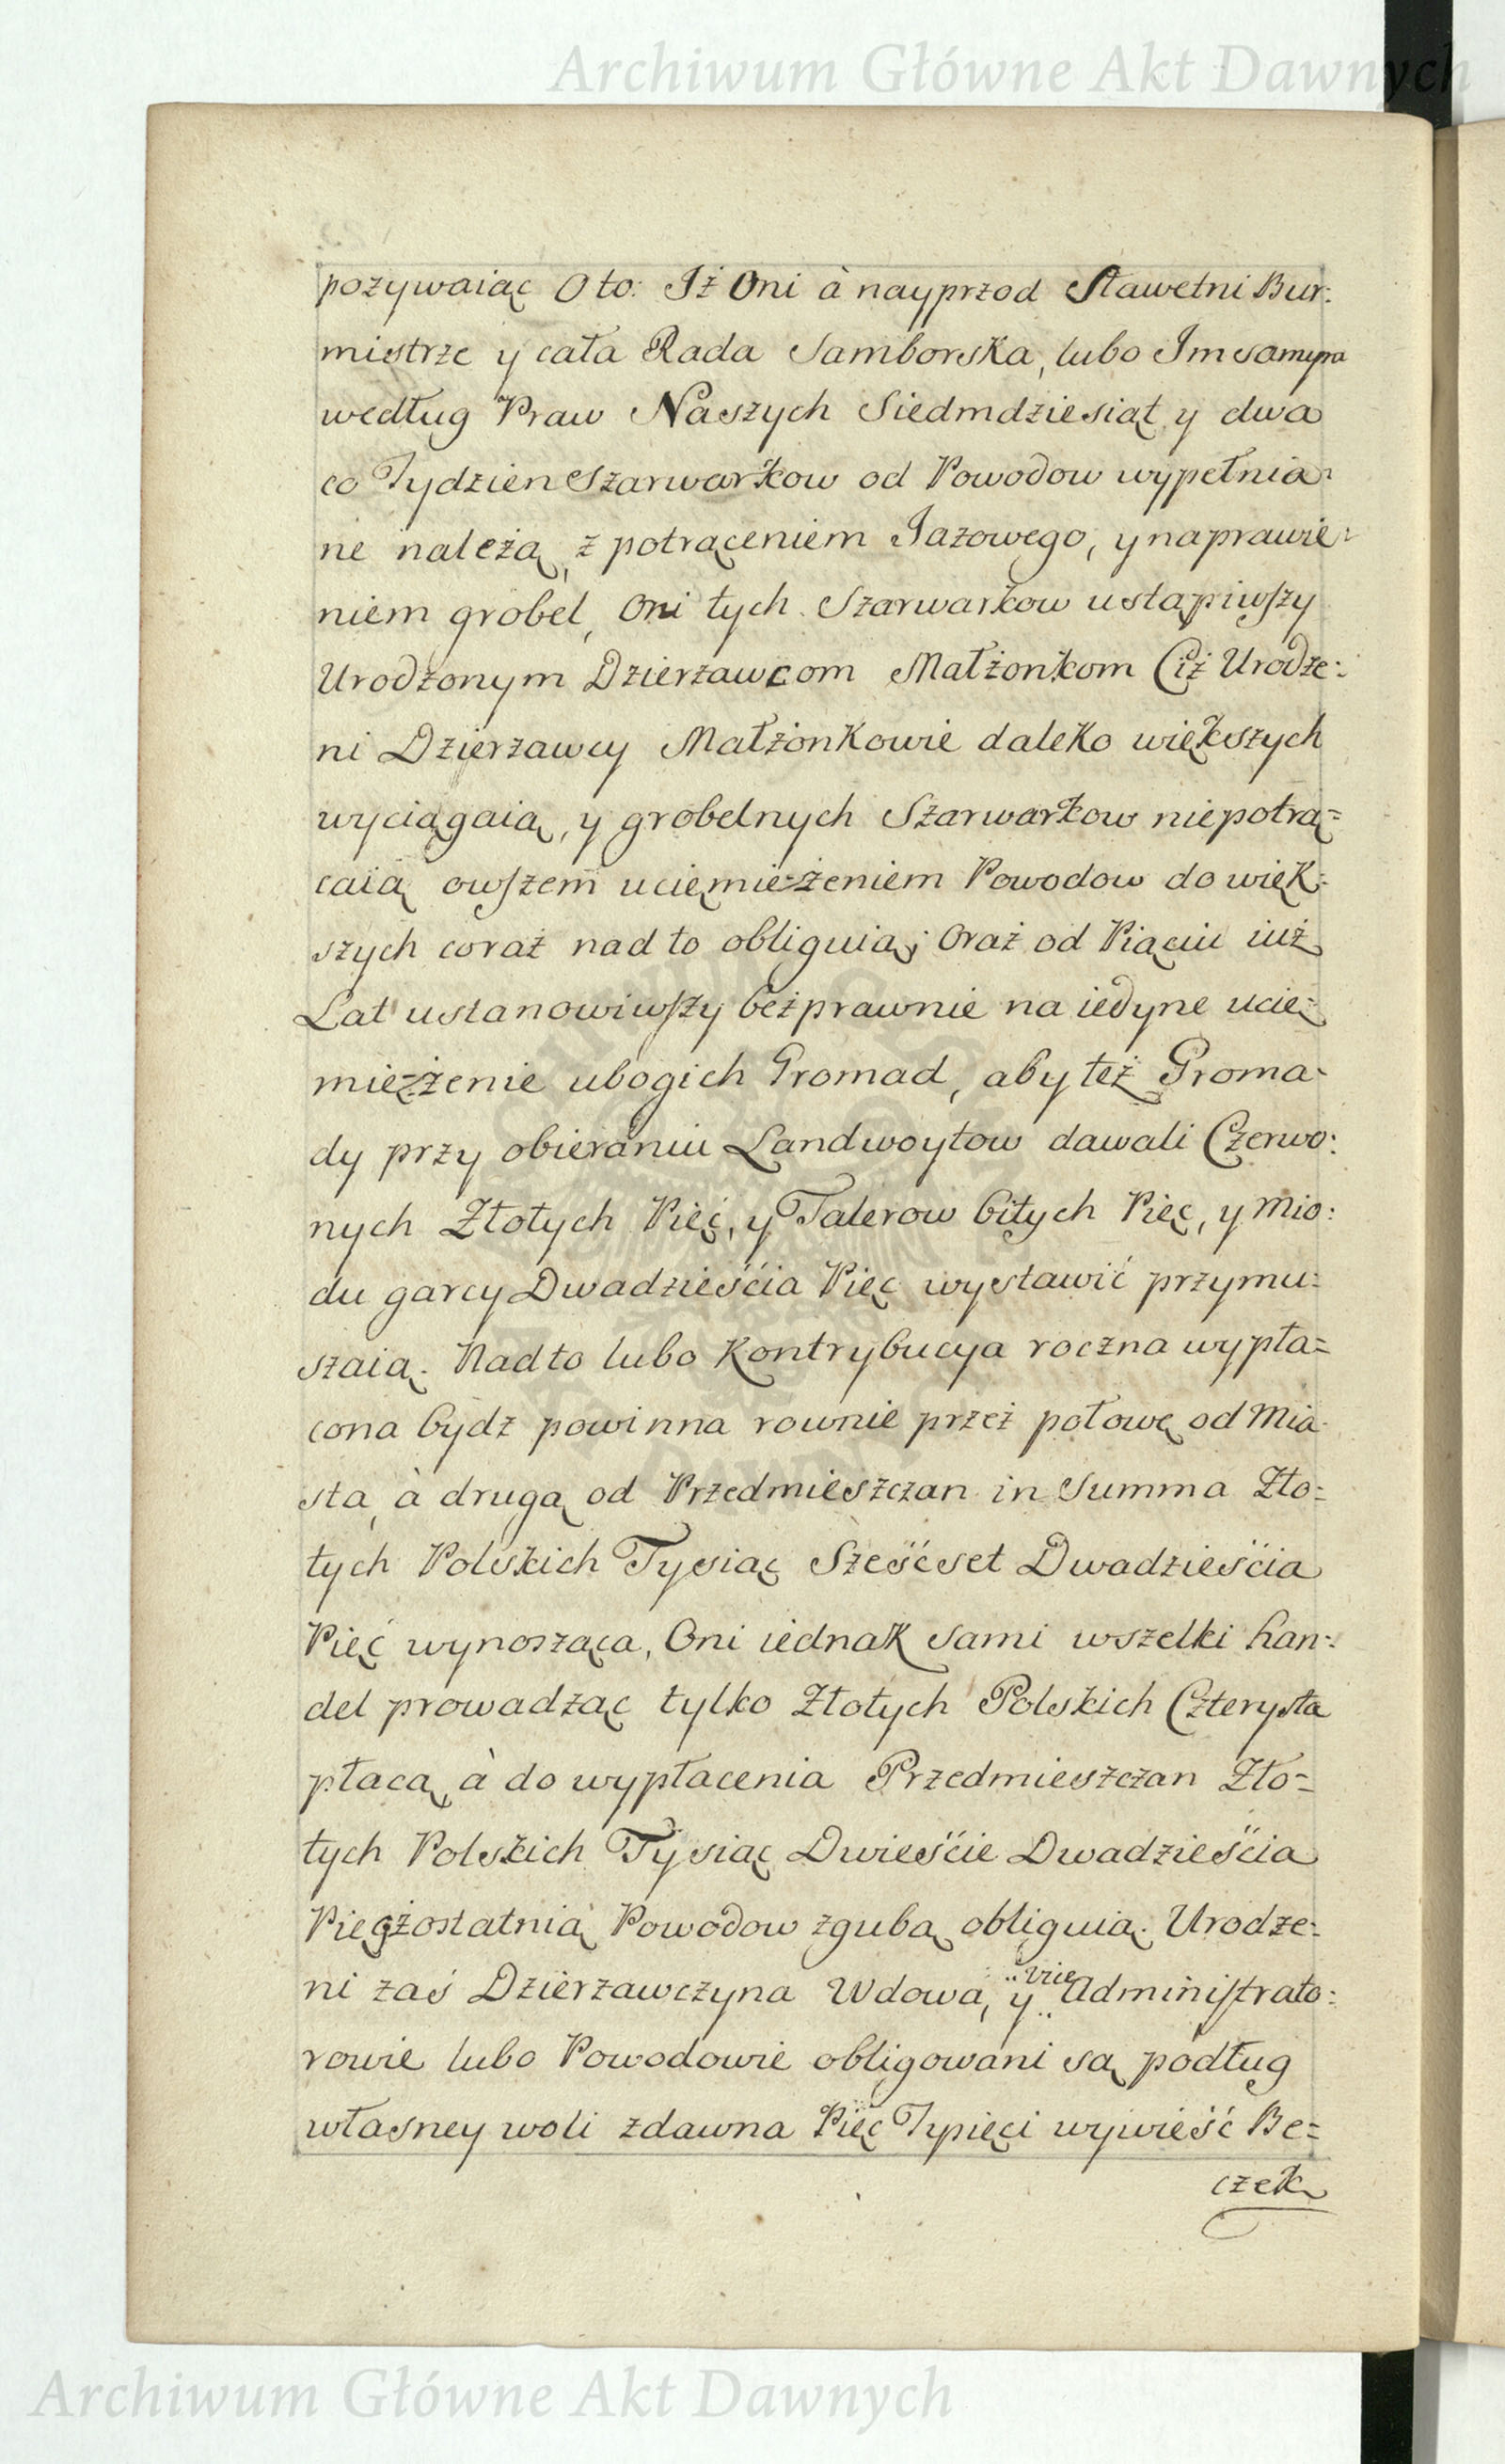 Archiwum Główne Akt Dawnych
pozywaiąc O to: Iż Oni à nayprzod Sławetni Bur:
mistrze y cała Rada Samborska, lubo Im samym
według Praw Naszych Siedmdziesiąt y dwa
co Tydzien Szarwarkow od Powodow wypełnia:
ne należą, z potrąceniem Jazowego, y naprawie:
niem grobel, Oni tych Szarwarkow ustąpiwszy
Urodzonym Dzierzawcom Małżonkom Ciż Urodze:
ni Dzierzawcy Małżonkowie daleko większych
wyciągaią, y grobelnych Szarwarkow niepotrą=
caią owszem uciemiężeniem Powodow do więk:
szych coraz nad to obliguią; Oraz od Piąciu iuż
Lat ustanowiwszy bezprawnie na iedyne ucie=
miężenie ubogich Gromad, aby też Groma-
dy przy obieraniu Landwoytow dawali Czerwo:
nych Złotych Pięć, y Talerow bitych Pięć, y Mio:
du garcy Dwadzieścia Pięc wystawić przymu:
szaią. Nadto lubo Kontrybucya roczna wypła=
cona bydz powinna rownie przez połowę od Mia-
sta, à drugą od Przedmieszczan in Summa Zło=
tych Polskich Tysiąc Sześćset Dwadzieścia
Pięć wynosząca, Oni iednak sami wszelki han:
del prowadząc tylko Złotych Polskich Czterysta
płacą, à do wypłacenia Przedmieszczan Zło=
tych Polskich Tysiąc Dwieście Dwadzieścia
Pięc zostatnią Powodow zgubą obliguią. Urodze:
ni zaś Dzierzawczyna Wdowa, y Vice Administrato:
rowie lubo Powodowie obligowani są podług
własney woli zdawna Pięc Typięci wywieść Be=
czek
Archiwum Główne Akt Dawnych